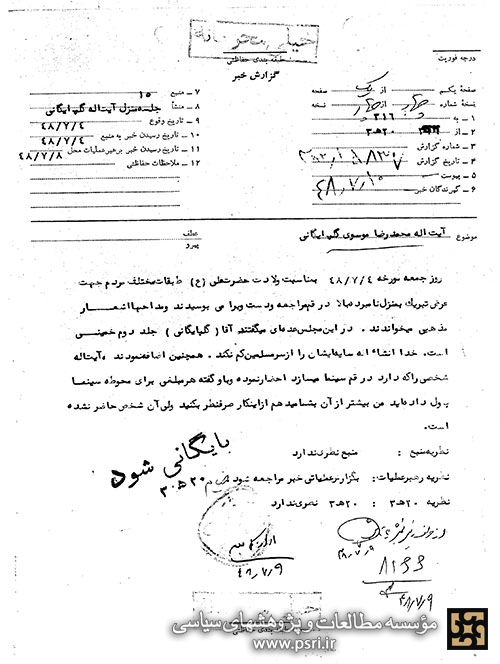 خیلی محرمانه
طبقه بندی حفاظتی
گزارش خبر
درجه فوریت
صفحه یکم از یک صفحه
نسخه شماره چهار از چهار نسخه
۱ - به ۳۱۶
۲ - از ۲۰ه‍ ۳
۳ - شماره گزارش
۴ - تاریخ گزارش ۴۸/۷/۱۰
۵ - پیوست
۶ - گیرندگان خبر
۷ - منبع ۱۵
۸ - منشأ جلسه منزل آیت اله گلپایگانی
۹ - تاریخ وقوع ۴۸/۷/۴
۱۰ - تاریخ رسیدن خبر به منبع ۴۸/۷/۴
۱۱ - تاریخ رسیدن خبر به رهبر عملیات محل ۴۸/۷/۸
۱۲ - ملاحظات حفاظتی
موضوع آیت اله محمدرضا موسوی گلپایگانی
عطف
پیرو
روز جمعه مورخه ۴۸/۷/۴ بمناسبت ولادت حضرت علی (ع) طبقات مختلف مردم جهت
عرض تبریک بمنزل نامبرده بالا در قم مراجعه و دست ویرا می بوسیدند و مداحها اشعار
مذهبی میخواندند . در این مجلس عده ای میگفتند آقا (گلپایگانی) جلد دوم خمینی
است. خدا انشاء اله سایه ایشان را از سر مسلمین کم نکند . همچنین اضافه نمودند آیت اله
شخصی راکه دارد در قم سینما میسازد احضار نموده و باو گفته هر مبلغی برای محوطه سینما
پول داده اید من بیشتر از آن بشما میدهم از اینکار صرفنظر بکنید ولی آن شخص حاضر نشده
است.
نظریه منبع : منبع نظری ندارد
نظریه رهبر عملیات : بگزارش عملیاتی خبر مراجعه شود
نظریه ۲۰ه‍ ۳ : ۲۰ه‍ ۳ نظری ندارد
بایگانی شود
۴۸/۷/۹
۴۸/۷/۹
۸۱۶۶
۴۸/۷/۹
مؤسسه مطالعات و پژوهشهای سیاسی
www.psri.ir